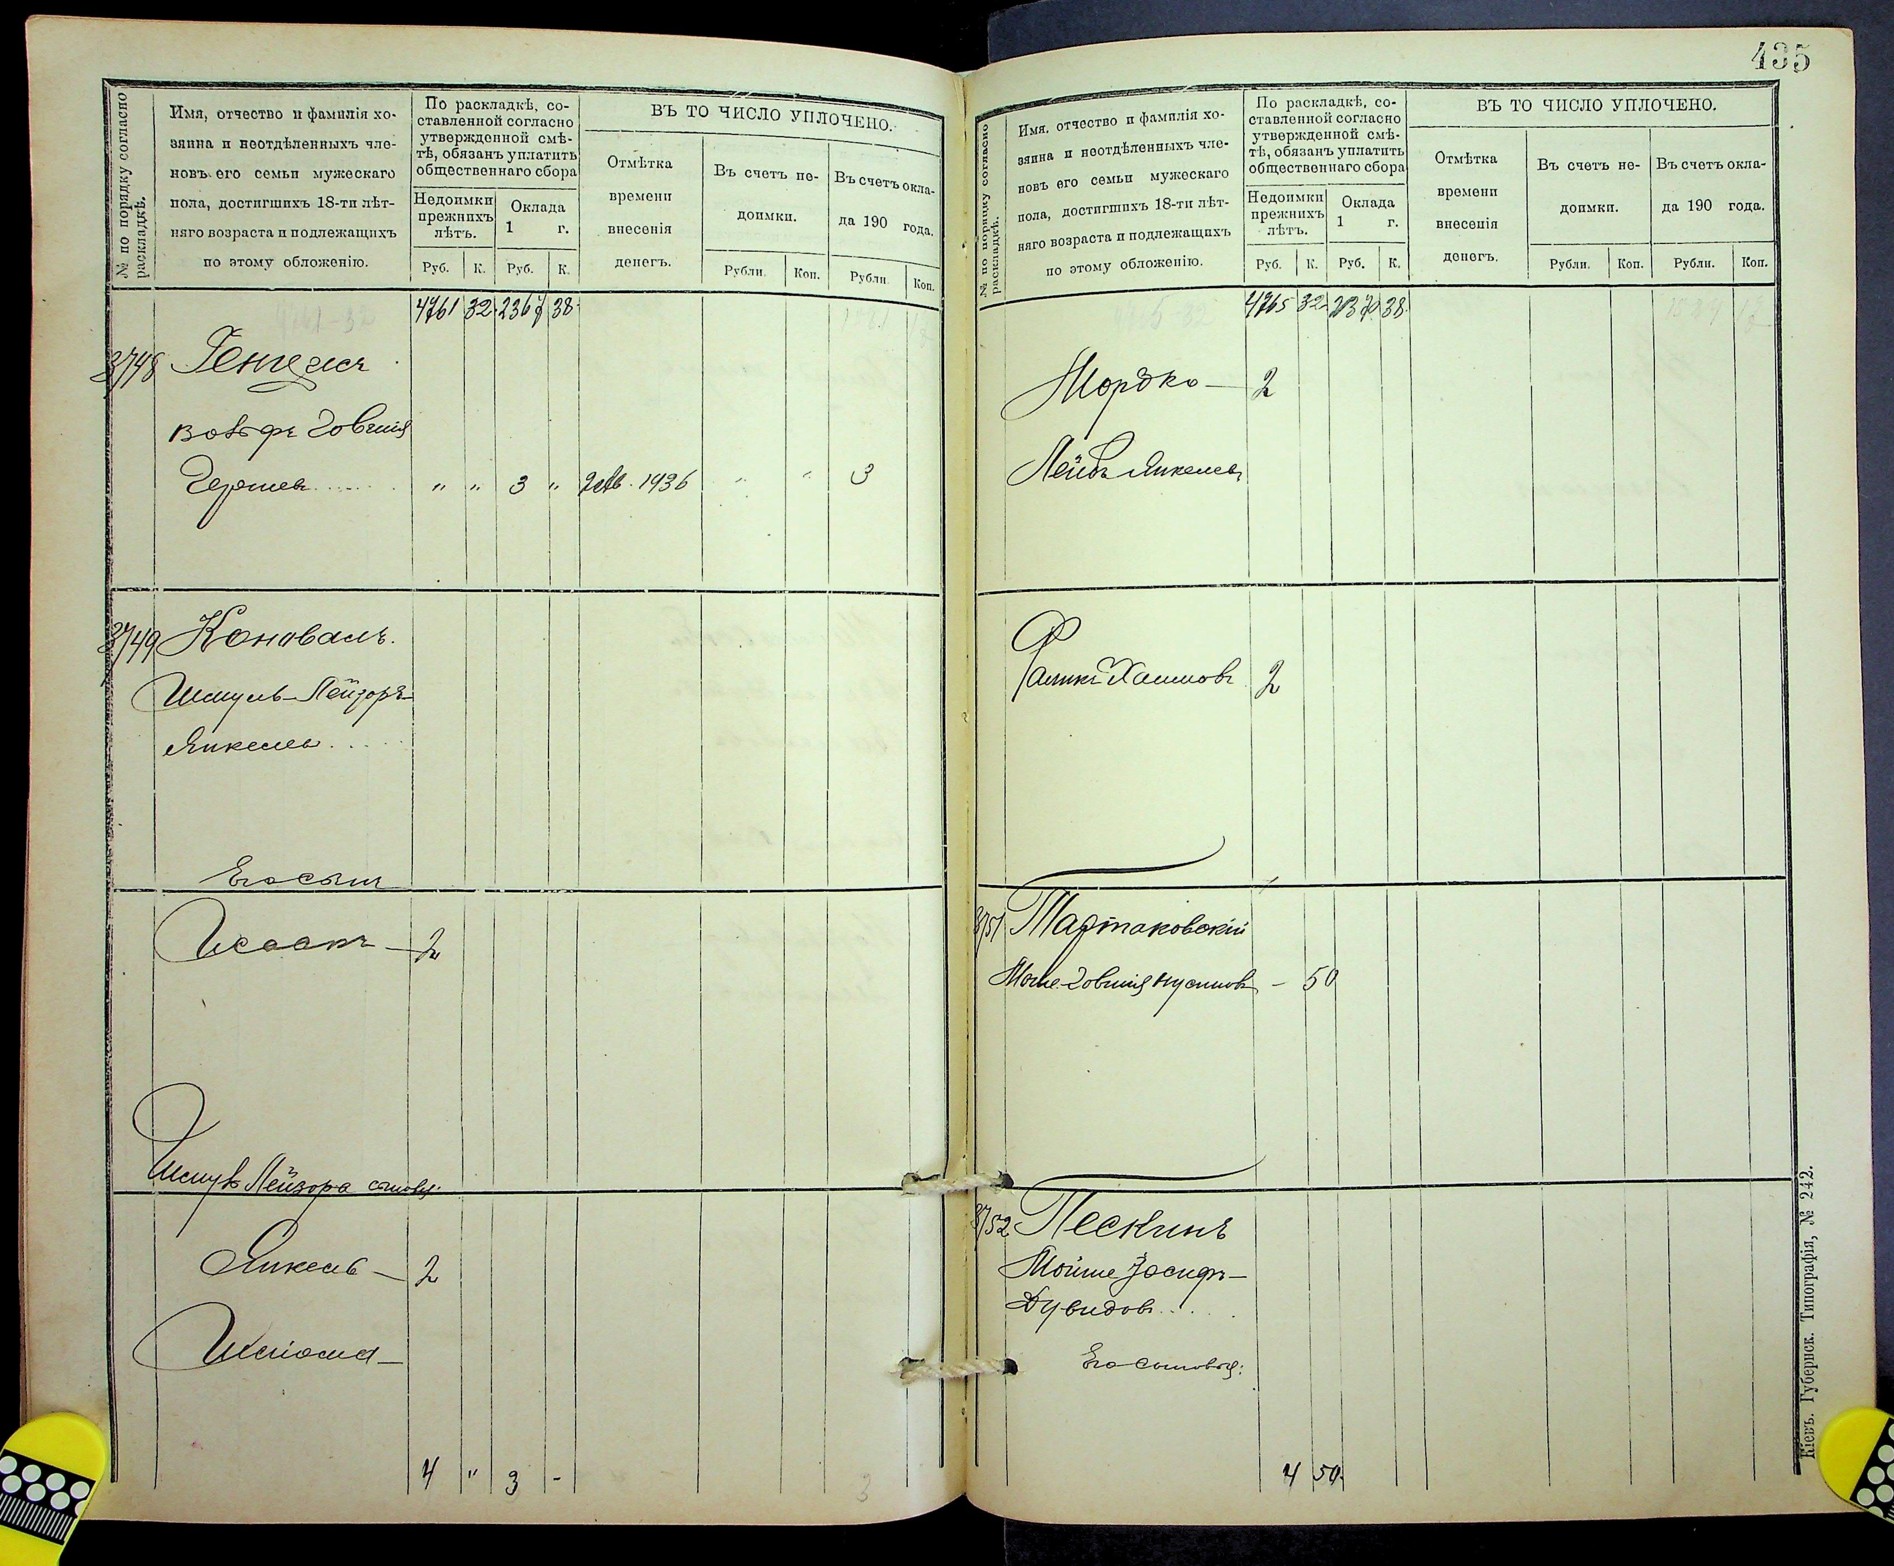 435
№ по порядку согласно раскладкѣ.
Имя, отчество и фамилія хо-
зяина и неотдѣленныхъ чле-
новъ его семьи мужескаго
пола, достигшихъ 18-ти лѣт-
няго возраста и подлежащихъ
по этому обложенію.
По раскладкѣ, со-
ставленной согласно
утвержденной смѣ-
тѣ, обязанъ уплатить
общественнаго сбора
Недоимки
прежнихъ
лѣтъ.
Оклада
1 г.
Руб. К. Руб. К.
ВЪ ТО ЧИСЛО УПЛОЧЕНО.
Отмѣтка
времени
внесенія
денегъ.
Въ счетъ не-
доимки.
Въ счетъ окла-
да 190 года.
Рубли. Коп. Рубли. Коп.
4761 32 2367 38
3748
вольфъ Іовшія
Гершев " " 3 " 1936 " " 3
3749 Коновалъ.
Шмуль-Лейзоръ-
Янкелев
Его сынъ
Исаакъ - 2
Шмуль Лейзора сыновья:
Янкель - 2
Шліома -
4 " 3 -
3
№ по порядку согласно раскладкѣ.
Имя, отчество и фамилія хо-
зяина и неотдѣленныхъ чле-
новъ его семьи мужескаго
пола, достигшихъ 18-ти лѣт-
няго возраста и подлежащихъ
по этому обложенію.
По раскладкѣ, со-
ставленной согласно
утвержденной смѣ-
тѣ, обязанъ уплатить
общественнаго сбора
Недоимки
прежнихъ
лѣтъ.
Оклада
1 г.
Руб. К. Руб. К.
ВЪ ТО ЧИСЛО УПЛОЧЕНО.
Отмѣтка
времени
внесенія
денегъ.
Въ счетъ не-
доимки.
Въ счетъ окла-
да 190 года.
Рубли. Коп. Рубли. Коп.
4765 32 2370 38
Мордко - 2
Лейбъ Янкелев
Фаликъ Хаимовъ 2
3751 Тартаковскій
Мошe-Іовшія Нусимовъ - 50
3752 Пескинъ
Мойше Іосифъ-
Дувидовъ
Его сыновья:
4 50
Кіевъ. Губернск. Типографія, № 242.